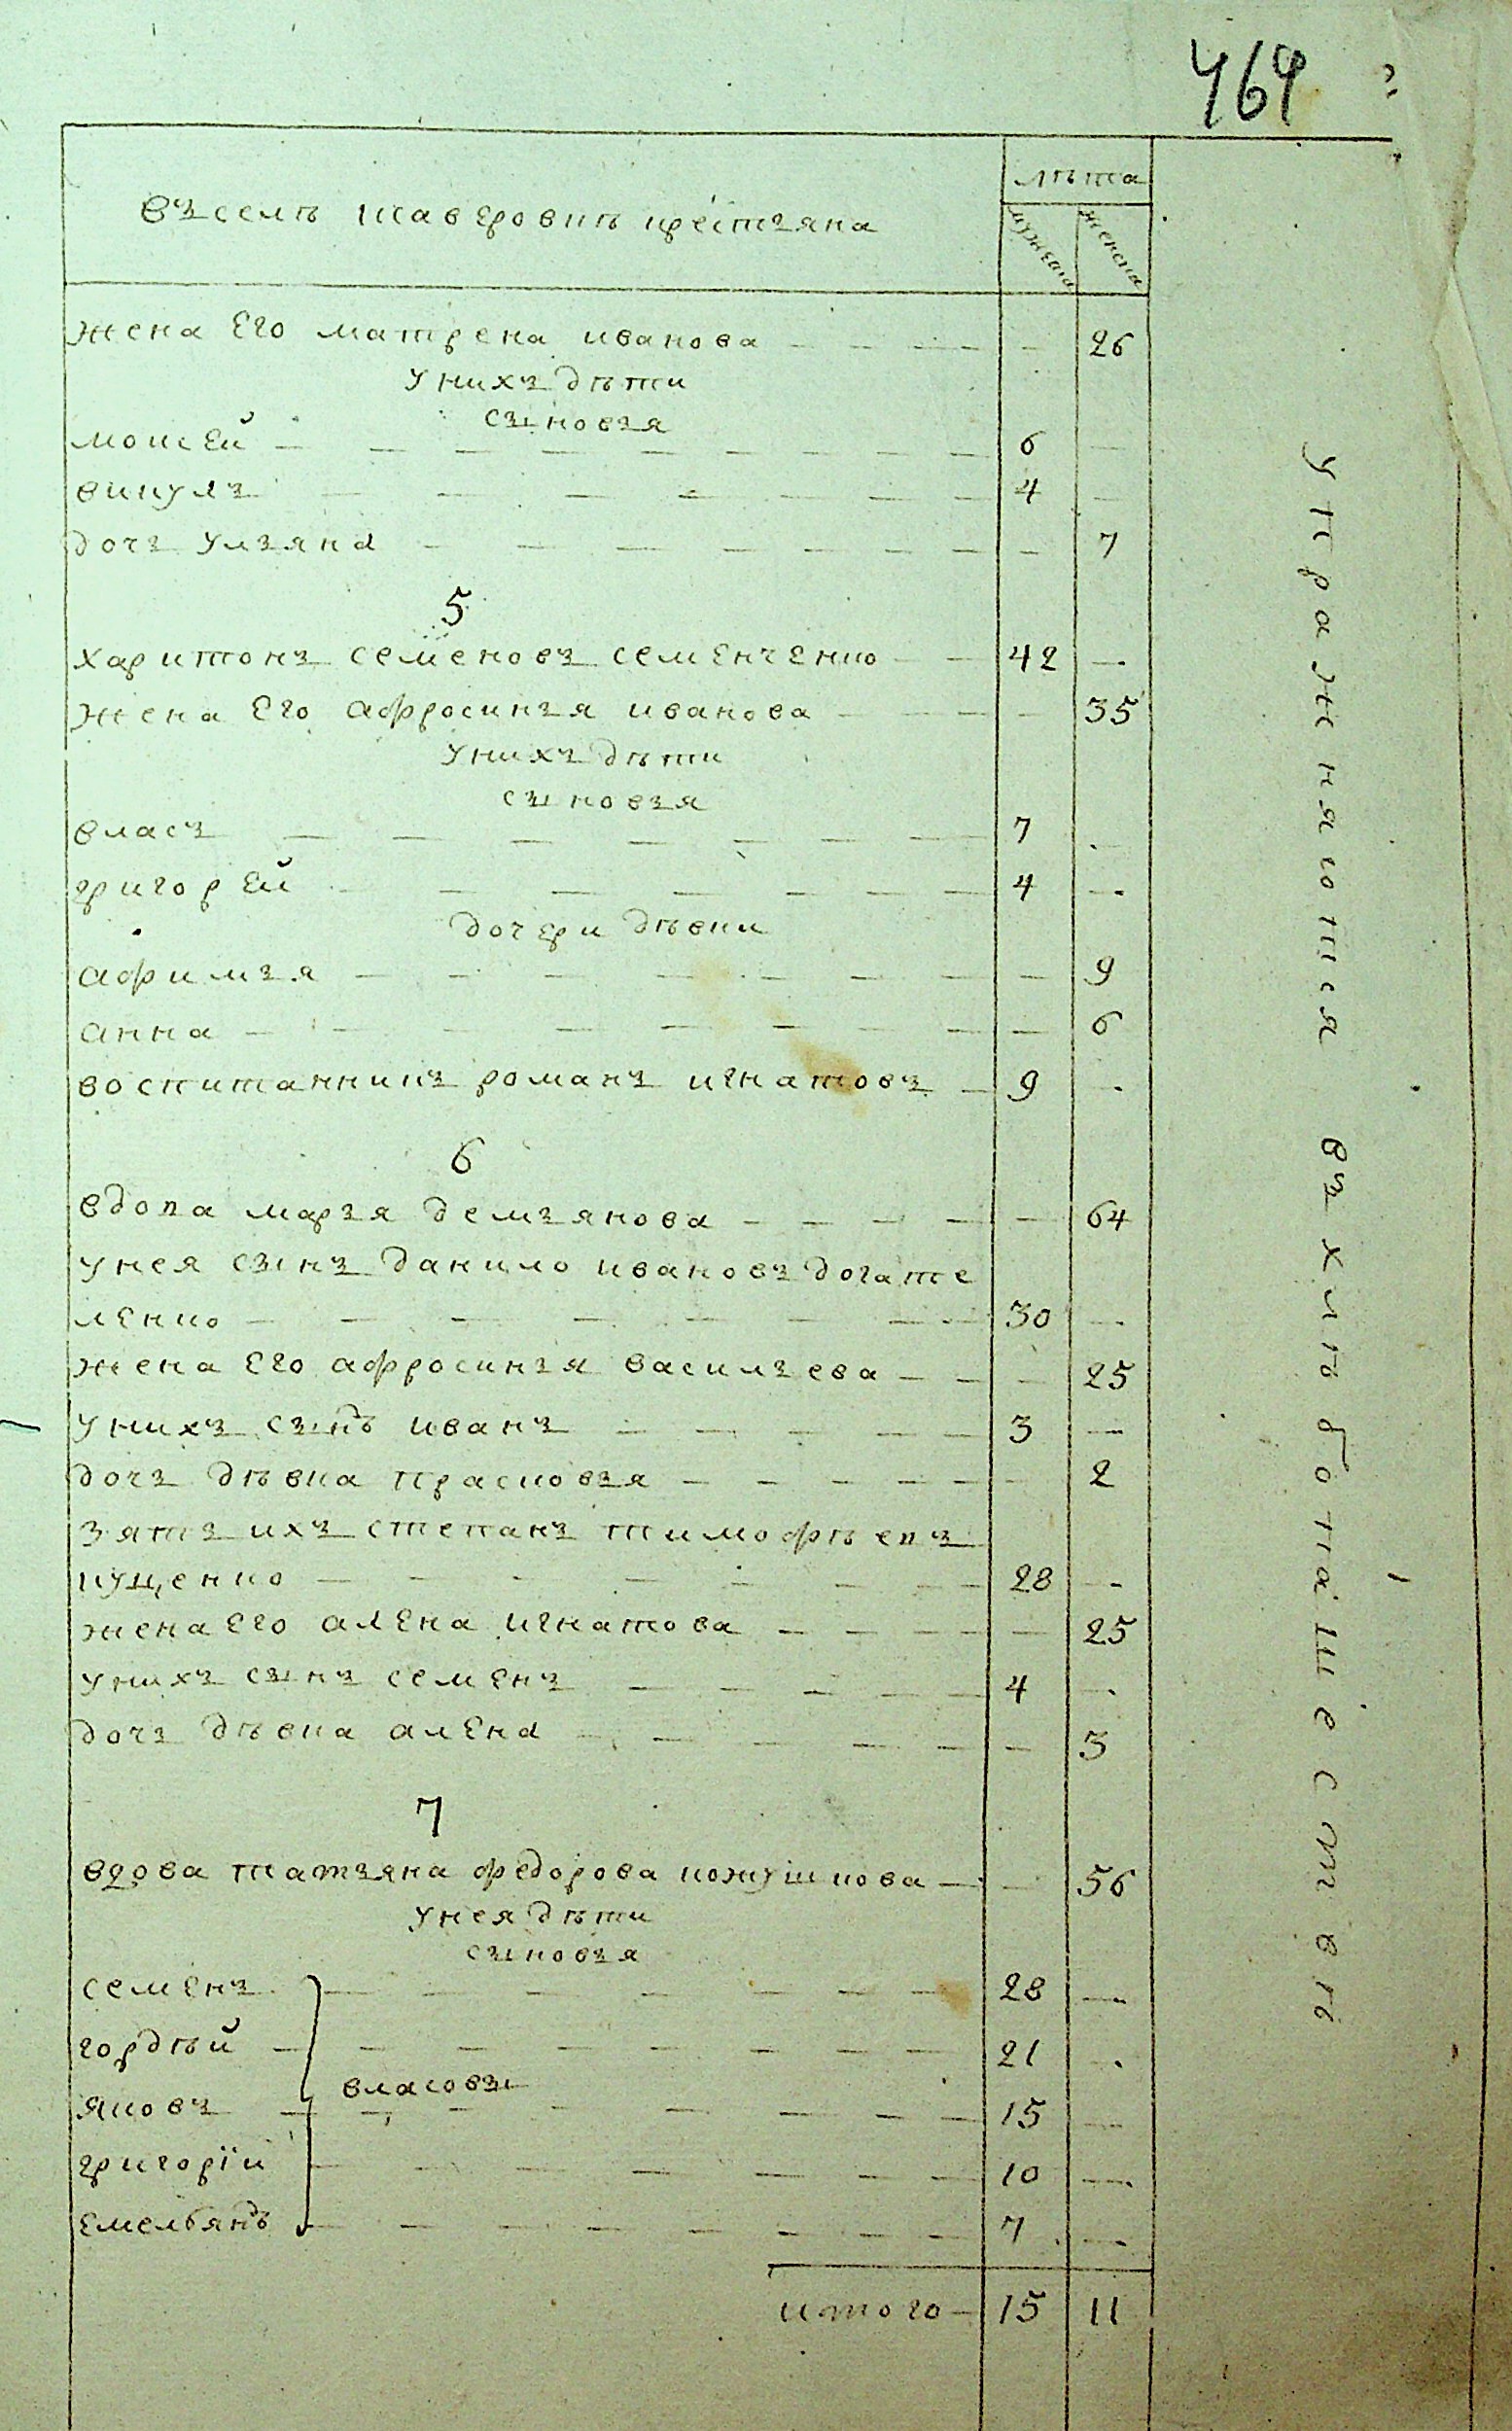 469
въ селѣ таверовкѣ крестьяна
лѣта
мужеска
женска
жена Его матрена иванова — 26
У нихъ дѣти
сыновья
мокѣй — 6 —
викулъ — 4 —
дочь Ульяна — 7
5
харитонъ семеновъ семенченко — 42 —
жена Его афросинья иванова — 35
У нихъ дѣти
сыновья
власъ — 7
григорЕй — 4 —
дочери дѣвки
афимья — 9
анна — 6
воспитанникъ романъ игнатовъ — 9
6
вдова марья демьянова — 64
У нея сынъ данило ивановъ догате
ленко — 30 —
жена Его афросинья васильева — 25
У нихъ сынъ иванъ — 3 —
дочь дѣвка прасковья — 2
зять ихъ степанъ тимофѣевъ
куценко — 28 —
жена Его алена игнатова — 25
У нихъ сынъ семенъ — 4
дочь дѣвка алена — 3
7
вдова татьяна федорова кожушкова — 56
У нея дѣти
сыновья
семенъ — 28 —
гордѣй — 21
власовы
яковъ — 15 —
григорій — 10 —
Емельянъ — 7 —
итого — 15 11
Упражняются въ хлѣбопашествѣ